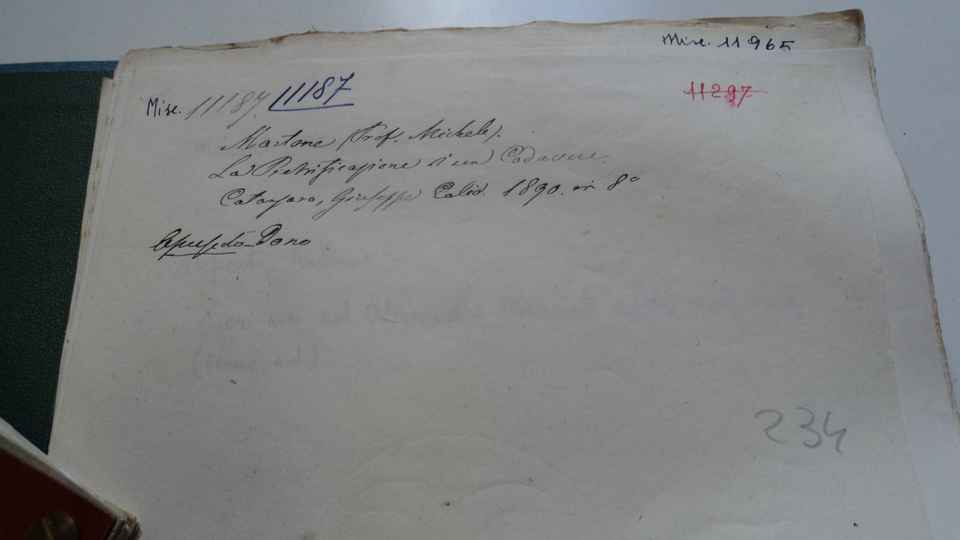 Misc. 11965
Misc. 11187. 11187
11297
Martone (Prof. Michele).
La Pietrificazione di un Cadavere.
Catanzaro, Giuseppe Caliò. 1890. in 8º
Dono
234